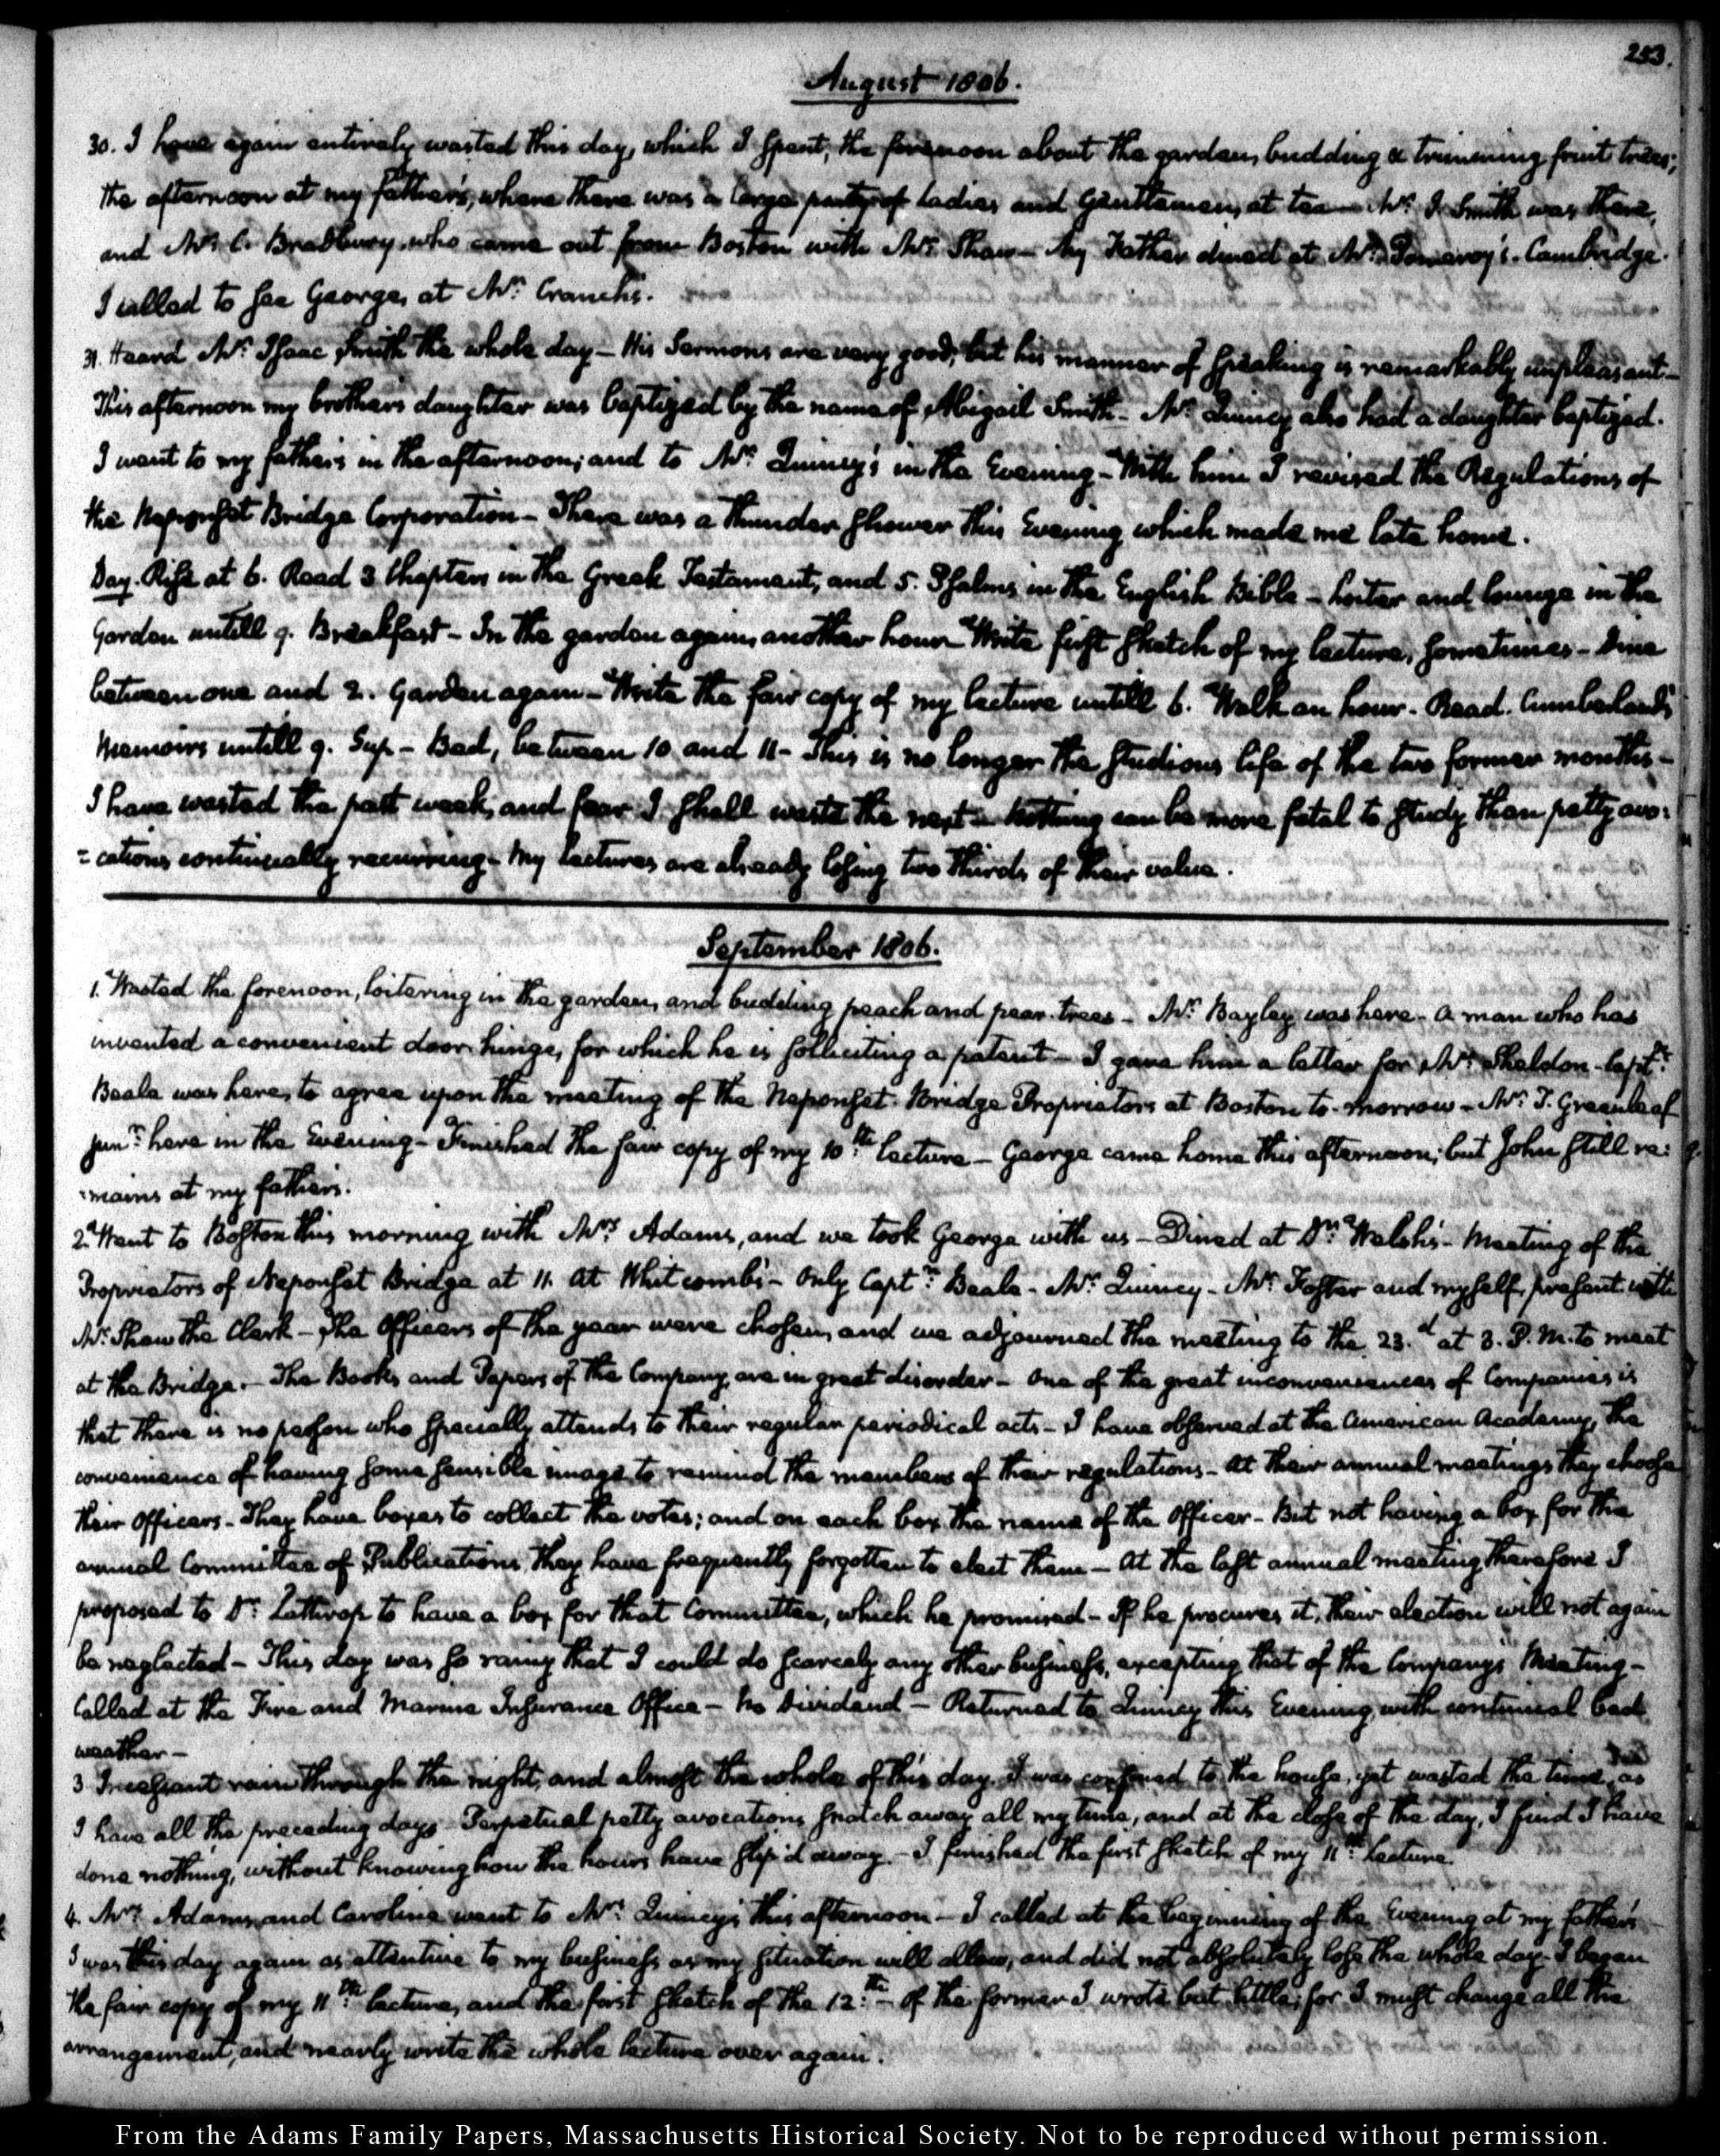 253.
August 1806.
30. I have again entirely wasted this day, which I spent, the forenoon about the garden, budding & trimming fruit trees;
the afternoon at my father's, where there was a large party of Ladies and Gentlemen, at tea — Mr. I. Smith was there,
and Mr. C. Bradbury, who came out from Boston with Mr. Shaw — My Father dined at Mr. Pomeroy's. Cambridge.
I called to see George, at Mr. Cranch's.
31. Heard Mr. Isaac Smith the whole day — His Sermons are very good; but his manner of speaking is remarkably unpleasant —
This afternoon my brother's daughter was baptized by the name of Abigail Smith — Mr. Quincy also had a daughter baptized.
I went to my father's in the afternoon; and to Mr. Quincy's in the Evening — With him I revised the Regulations of
the Neponset Bridge Corporation — There was a thunder shower this Evening which made me late home.
Day. Rise at 6. Read 3 Chapters in the Greek Testament, and 5. Psalms in the English Bible — loiter and lounge in the
Garden untill 9. Breakfast — In the garden again, another hour Write first sketch of my lecture, sometimes — Dine
between one and 2. Garden again — Write the fair copy of my lecture untill 6. Walk an hour. Read. Cumberland's
Memoirs untill 9. Sup — Bed, between 10 and 11 — This is no longer the studious life of the two former months —
I have wasted the past week, and fear I shall waste the next — Nothing can be more fatal to study than petty avo=
=cations continually recurring — My lectures are already losing two thirds of their value.
September 1806.
1. Wasted the forenoon, loitering in the garden, and budding peach and pear-trees — Mr. Bayley was here — a man who has
invented a convenient door hinge, for which he is solliciting a patent — I gave him a letter for Mr. Sheldon — Captn.
Beale was here, to agree upon the meeting of the Neponset Bridge Proprietors at Boston to-morrow — Mr. T. Greenleaf
junr. here in the Evening — Finished the fair copy of my 10th. lecture — George came home this afternoon; but John still re=
=mains at my father's.
2. Went to Boston this morning with Mrs. Adams, and we took George with us — Dined at Dr. Welsh's — Meeting of the
Proprietors of Neponset Bridge at 11. at Whitcomb's — Only Captn. Beale — Mr. Quincy — Mr. Foster and myself, present with
Mr. Shaw the Clerk — The Officers of the year were chosen, and we adjourned the meeting to the 23.d at 3. P.M. to meet
at the Bridge. — The Books and Papers of the Company, are in great disorder — One of the great inconveniences of Companies is
that there is no person who specially attends to their regular periodical acts — I have observed at the American Academy, the
convenience of having some sensible image to remind the members of their regulations — At their annual meetings they choose
their Officers — They have boxes to collect the votes; and on each box the name of the Officer — But not having a box for the
annual Committee of Publications, they have frequently forgotten to elect them — At the last annual meeting therefore I
proposed to Dr. Lathrop to have a box for that Committee, which he promised — If he procures it, their election will not again
be neglected — This day was so rainy that I could do scarcely any other business, excepting that of the Company's Meeting —
Called at the Fire and Marine Insurance Office — No Dividend — Returned to Quincy this Evening, with continual bad
weather —
3 Incessant rain through the night, and almost the whole of this day. I was confined to the house, yet wasted the time, as
I have all the preceding days Perpetual petty avocations snatch away all my time, and at the close of the day, I find I have
done nothing, without knowing how the hours have slip'd away. — I finished the first sketch of my 11th. lecture.
4. Mrs. Adams, and Caroline went to Mr. Quincy's this afternoon — I called at the beginning of the Evening at my father's
I was this day again as attentive to my business as my situation will allow, and did not absolutely lose the whole day — I began
the fair copy of my 11th. lecture, and the first sketch of the 12.th — Of the former I wrote but little; for I must change all the
arrangement, and nearly write the whole lecture over again.
From the Adams Family Papers, Massachusetts Historical Society. Not to be reproduced without permission.